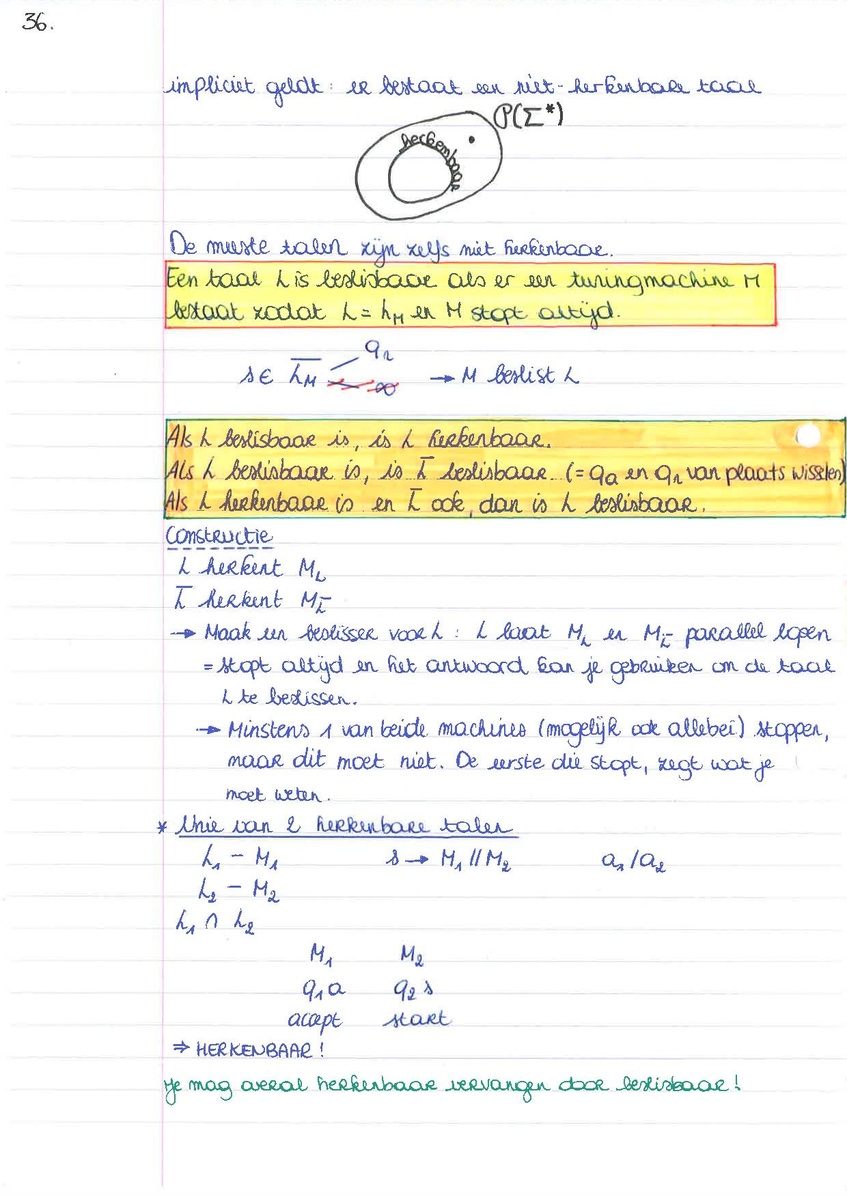 36.
impliciet geldt: er bestaat een niet-herkenbare taal
P(Σ*)
herkenbaar
De meeste talen zijn zelfs niet herkenbaar.
Een taal L is beslisbaar als er een turingmachine M
bestaat zodat L = L_M en M stopt altijd.
q_r
s ∈ L̅_M → M beslist L
∞
Als L beslisbaar is, is L herkenbaar.
Als L beslisbaar is, is L̅ beslisbaar (= q_a en q_r van plaats wisselen)
Als L herkenbaar is en L̅ ook, dan is L beslisbaar.
Constructie
L herkent M_L
L̅ herkent M_L̅
→ Maak een beslisser voor L : L laat M_L en M_L̅ parallel lopen
= stopt altijd en het antwoord kan je gebruiken om de taal
L te beslissen.
→ Minstens 1 van beide machines (mogelijk ook allebei) stoppen,
maar dit moet niet. De eerste die stopt, zegt wat je
moet weten.
* Unie van 2 herkenbare talen
L₁ – M₁ s → M₁ // M₂ a₁/a₂
L₂ – M₂
L₁ ∩ L₂
M₁ M₂
q₁a q₂s
accept start
⇒ HERKENBAAR!
Je mag overal herkenbaar vervangen door beslisbaar!